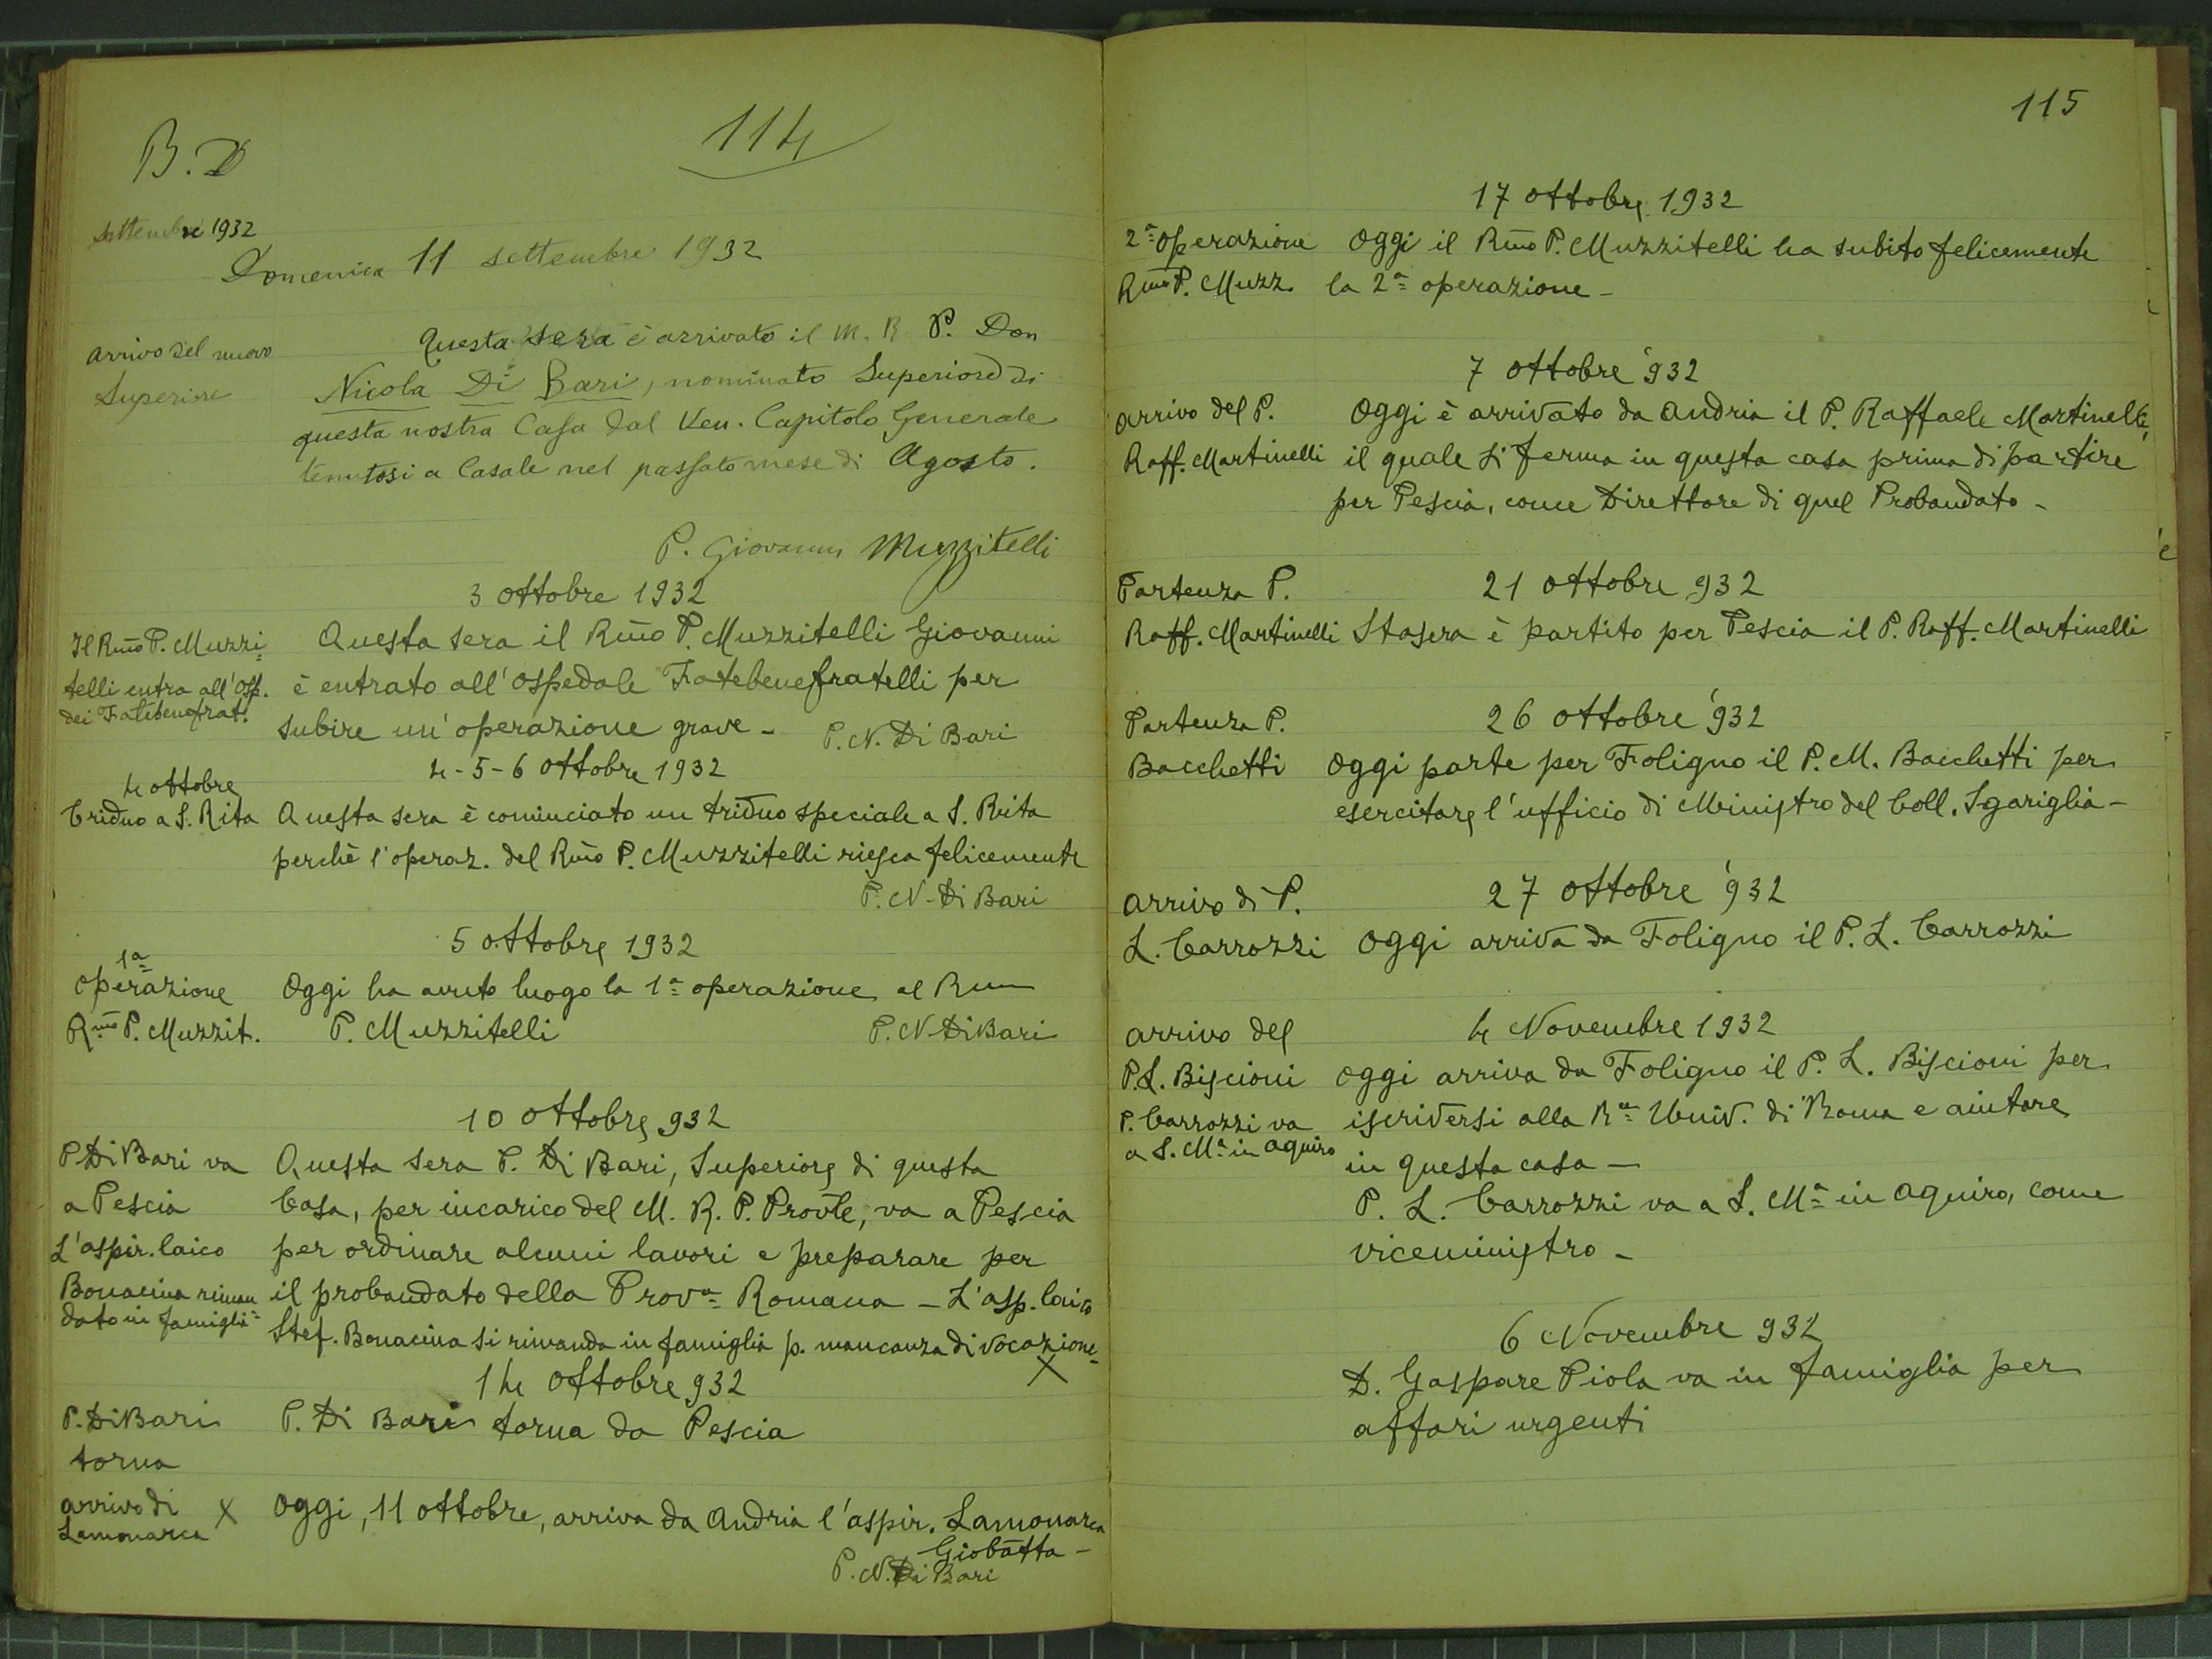 114
B. D
Settembre 1932
Domenica 11 settembre 1932
Arrivo del nuovo
Superiore
Questa sera è arrivato il M. R. P. Don
Nicola Di Bari, nominato Superiore di
questa nostra Casa dal Ven. Capitolo Generale
tenutosi a Casale nel passato mese di Agosto.
P. Giovanni Muzzitelli
3 ottobre 1932
Il Rmo P. Muzzi=
telli entra all'Osp.
dei Fatebenefrat.
Questa sera il Rmo P. Muzzitelli Giovanni
è entrato all'ospedale Fatebenefratelli per
subire un'operazione grave - P. N. Di Bari
4 - 5 - 6 ottobre 1932
4 ottobre
Triduo a S. Rita
Questa sera è cominciato un triduo speciale a S. Rita
perchè l'operaz. del Rmo P. Muzzitelli riesca felicemente
P. N. Di Bari
5 ottobre 1932
1a
operazione
Rmo P. Muzzit.
Oggi ha avuto luogo la 1a operazione al Rmo
P. Muzzitelli P. N Di Bari
10 ottobre 932
P Di Bari va
a Pescia
L'aspir. laico
Bonacina riman
dato in famiglia
Questa sera P. Di Bari, Superiore di questa
Casa, per incarico del M. R. P. Provle, va a Pescia
per ordinare alcuni lavori e preparare per
il probandato della Prova Romana - L'asp. laico
Stef. Bonacina si rimanda in famiglia p. mancanza di vocazione -
X
14 ottobre 932
P. Di Bari
torna
P. Di Bari torna da Pescia
arrivo di
Lamonarca
X Oggi, 11 ottobre, arriva da Andria l'aspir. Lamonarca
Giobatta -
P. N. Di Bari
115
17 ottobre 1932
2a operazione
Rmo P. Muzz.
Oggi il Rmo P. Muzzitelli ha subito felicemente
la 2a operazione -
7 ottobre '932
arrivo del P.
Raff. Martinelli
Oggi è arrivato da Andria il P. Raffaele Martinelli,
il quale si ferma in questa casa prima di partire
per Pescia, come Direttore di quel Probandato -
21 ottobre 932
Partenza P.
Raff. Martinelli
Stasera è partito per Pescia il P. Raff. Martinelli
26 ottobre '932
Partenza P.
Bacchetti
Oggi parte per Foligno il P. M. Bacchetti per
esercitare l'ufficio di Ministro del Coll. Sgariglia -
27 ottobre '932
arrivo di P.
L. Carrozzi
Oggi arriva da Foligno il P. L. Carrozzi
4 Novembre 1932
arrivo del
P. L. Biscioni
P. Carrozzi va
a S. Ma in Aquiro
Oggi arriva da Foligno il P. L. Biscioni per
iscriversi alla Ra Univ. di Roma e aiutare
in questa casa -
P. L. Carrozzi va a S. Ma in Aquiro, come
viceministro -
6 Novembre 932
D. Gaspare Piola va in famiglia per
affari urgenti